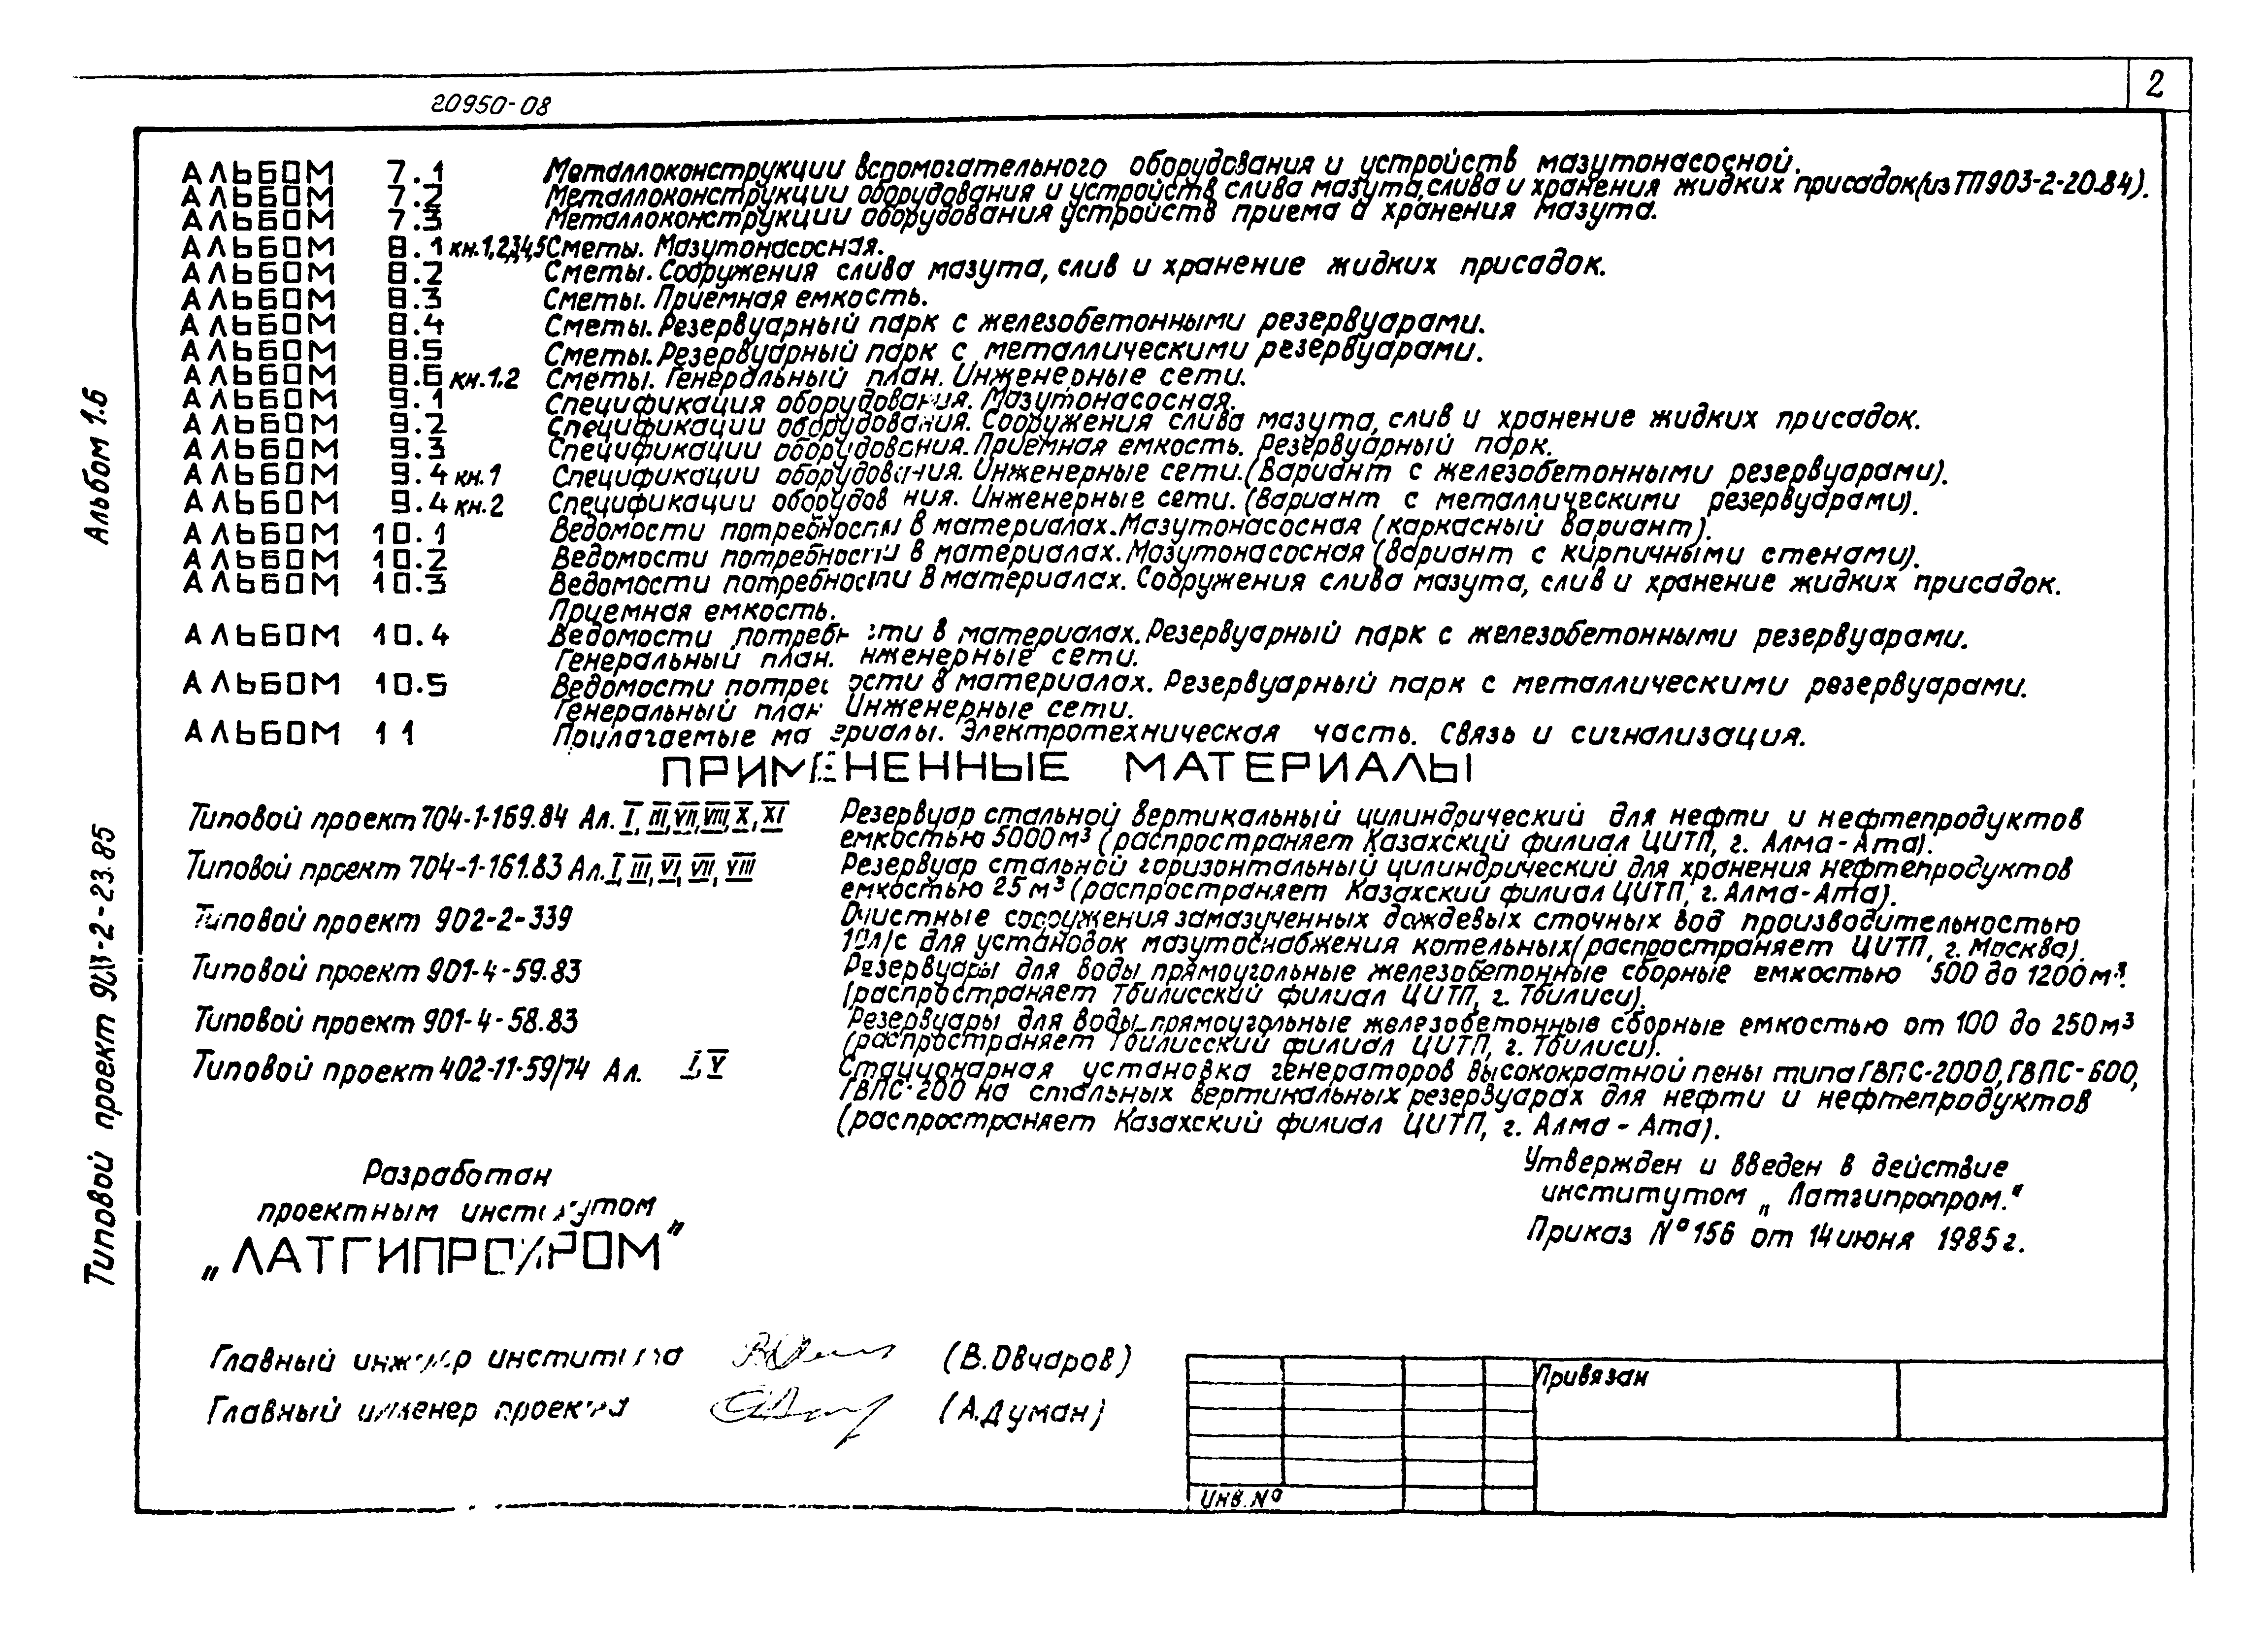 2
20950-08
АЛЬБОМ 7.1 Металлоконструкции вспомогательного оборудования и устройств мазутонасосной.
АЛЬБОМ 7.2 Металлоконструкции оборудования и устройств слива мазута, слива и хранения жидких присадок (из ТП903-2-20.84).
АЛЬБОМ 7.3 Металлоконструкции оборудования устройств приема и хранения мазута.
АЛЬБОМ 8.1 кн.1,2,3,4,5 Сметы. Мазутонасосная.
АЛЬБОМ 8.2 Сметы. Сооружения слива мазута, слив и хранение жидких присадок.
АЛЬБОМ 8.3 Сметы. Приемная емкость.
АЛЬБОМ 8.4 Сметы. Резервуарный парк с железобетонными резервуарами.
АЛЬБОМ 8.5 Сметы. Резервуарный парк с металлическими резервуарами.
АЛЬБОМ 8.6 кн.1.2 Сметы. Генеральный план. Инженерные сети.
АЛЬБОМ 9.1 Спецификация оборудования. Мазутонасосная.
АЛЬБОМ 9.2 Спецификации оборудования. Сооружения слива мазута, слив и хранение жидких присадок.
АЛЬБОМ 9.3 Спецификации оборудования. Приемная емкость. Резервуарный парк.
АЛЬБОМ 9.4 кн.1 Спецификации оборудования. Инженерные сети. (Вариант с железобетонными резервуарами).
АЛЬБОМ 9.4 кн.2 Спецификации оборудов ния. Инженерные сети. (Вариант с металлическими резервуарами).
АЛЬБОМ 10.1 Ведомости потребности в материалах. Мазутонасосная (каркасный вариант).
АЛЬБОМ 10.2 Ведомости потребности в материалах. Мазутонасосная (вариант с кирпичными стенами).
АЛЬБОМ 10.3 Ведомости потребности в материалах. Сооружения слива мазута, слив и хранение жидких присадок.
Приемная емкость.
АЛЬБОМ 10.4 Ведомости потребн сти в материалах. Резервуарный парк с железобетонными резервуарами.
Генеральный план. нженерные сети.
АЛЬБОМ 10.5 Ведомости потреб ости в материалах. Резервуарный парк с металлическими резервуарами.
Генеральный план Инженерные сети.
АЛЬБОМ 11 Прилагаемые ма ериалы. Электротехническая часть. Связь и сигнализация.
ПРИМЕНЕННЫЕ МАТЕРИАЛЫ
Типовой проект 704-1-169.84 Ал. I, III, VII, VIII, X, XI Резервуар стальной вертикальный цилиндрический для нефти и нефтепродуктов
емкостью 5000 м³ (распространяет Казахский филиал ЦИТП, г. Алма-Ата).
Типовой проект 704-1-161.83 Ал. I, III, VI, VII, VIII Резервуар стальной горизонтальный цилиндрический для хранения нефтепродуктов
емкостью 25 м³ (распространяет Казахский филиал ЦИТП, г. Алма-Ата).
Типовой проект 902-2-339 Очистные сооружения замазученных дождевых сточных вод производительностью
10л/с для установок мазутоснабжения котельных (распространяет ЦИТП, г. Москва).
Типовой проект 901-4-59.83 Резервуары для воды прямоугольные железобетонные сборные емкостью 500 до 1200 м³.
(распространяет Тбилисский филиал ЦИТП, г. Тбилиси).
Типовой проект 901-4-58.83 Резервуары для воды прямоугольные железобетонные сборные емкостью от 100 до 250 м³
(распространяет Тбилисский филиал ЦИТП, г. Тбилиси).
Типовой проект 402-11-59/74 Ал. I, V Стационарная установка генераторов высокократной пены типа ГВПС-2000, ГВПС-600,
ГВПС-200 на стальных вертикальных резервуарах для нефти и нефтепродуктов
(распространяет Казахский филиал ЦИТП, г. Алма-Ата).
Разработан
проектным институтом
„ЛАТГИПРОПРОМ"
Утвержден и введен в действие
институтом „Латгипропром."
Приказ № 156 от 14 июня 1985 г.
Главный инженер института (В. Овчаров)
Главный инженер проекта (А. Думан)
Привязан
Инв. №
Альбом 1.6
Типовой проект 903-2-23.85